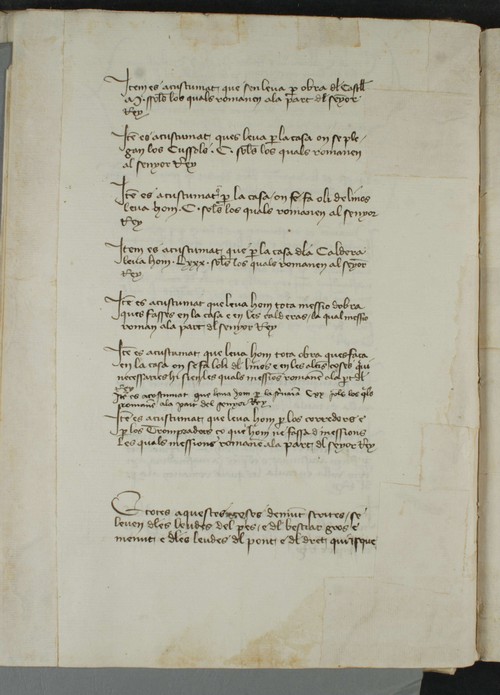 Item es acustumat que sen leva p obra dl Castell
solls los quals romanen ala part dl senyor
Rey
Ite es acustumat ques leva p la casa on se ple
gan los Cussols . C . solls los quals romanen
al senyor Rey
Ite es acustumat p la casa on se fa oli de linos
leva hom . C . solls los quals romanen al senyor
Rey
Item es acustumat que p la casa dla Caldera
leva hom . Lxxx . solls los quals romanen al senyor
Rey
Ite es acustumat que leva hom tota messio dobra
ques fasses en la casa e en les calderas la qual messio
roman ala part dl senyor Rey
Ite es acustumat que leva hom tota obra ques faça
en la casa on se fa loli dl linos e en les altres coses qui
necessaries hi sien les quals messios romane ala pt dl
Rey
Ite es acostumat que leva hom p la Cxx sols los qls
romane ala part del senyor Rey
Ite es acustumat que leva hom p los corredors e
p los Trompadors ço que hom ne fassa d messions
les quals messions romane ala part dl senyor Rey
E totes aquestes coses demunt scrites se
leven dles leudes del pes e dl bestiar gros e
menut e dles leudes dl pont e dl dret quisque